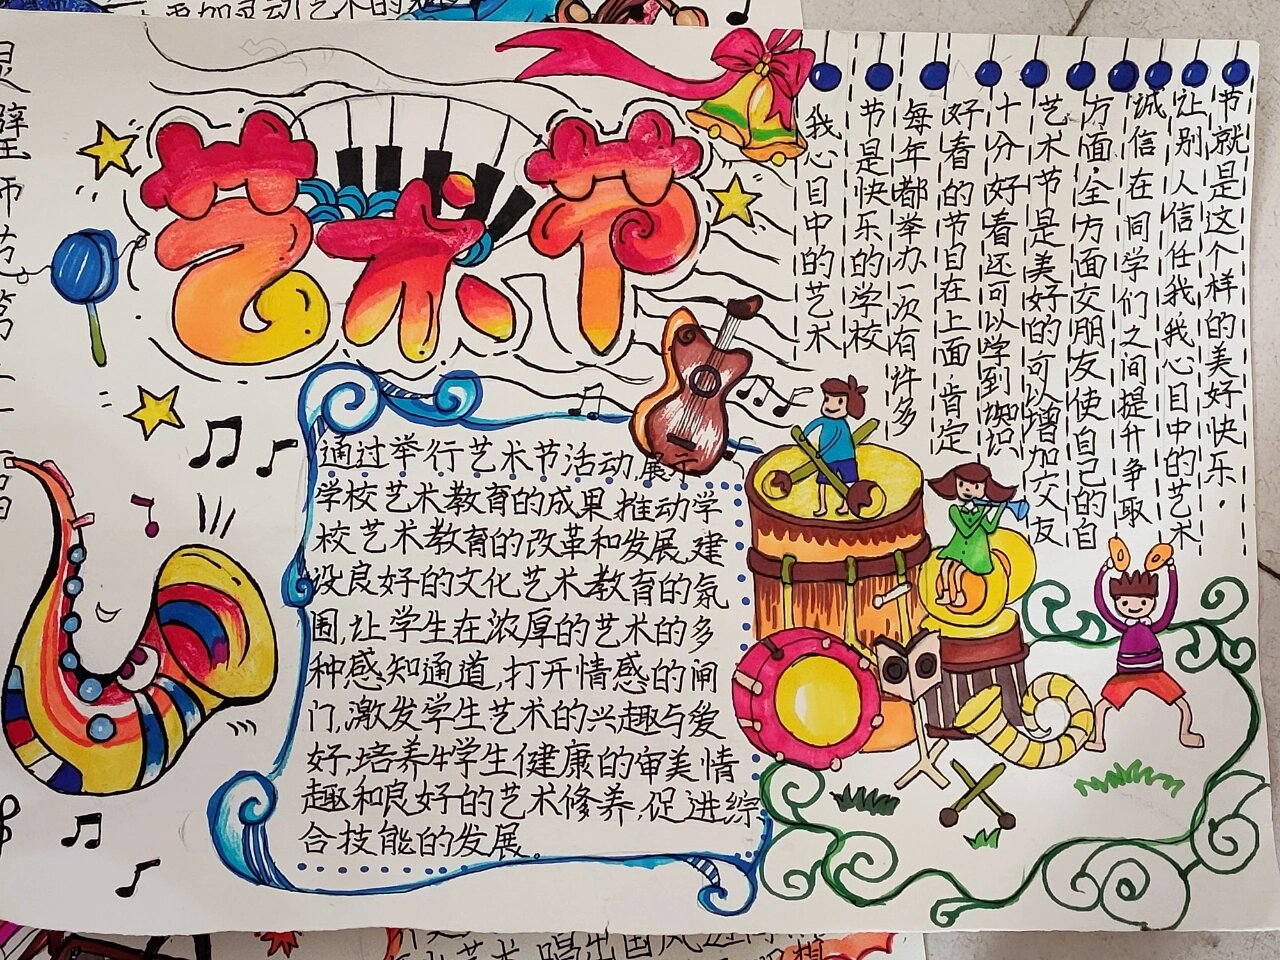 艺术节
我心目中的艺术
节是快乐的学校
每年都举办一次有许多
好看的节目在上面肯定
十分好看还可以学到知识
艺术节是美好的可以增加交友
方面,全方面交朋友使自己的自
诚信在同学们之间提升争取
让别人信任我我心目中的艺术
节就是这个样的美好快乐.
通过举行艺术节活动,展示
学校艺术教育的成果,推动学
校艺术教育的改革和发展,建
设良好的文化艺术教育的氛
围,让学生在浓厚的艺术的多
种感知通道,打开情感的闸
门,激发学生艺术的兴趣与爱
好,培养学生健康的审美情
趣和良好的艺术修养,促进综
合技能的发展。